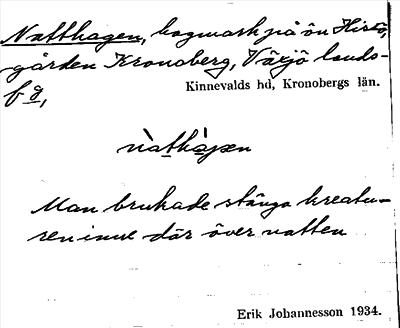 Natthagen, hagmark på ön Hissö,
gården Kronoberg, Växjö lands-
Kinnevalds hd, Kronobergs län.
f g,
nathagen
Man brukade stänga kreatu-
ren inne där över natten
Erik Johannesson 1934.